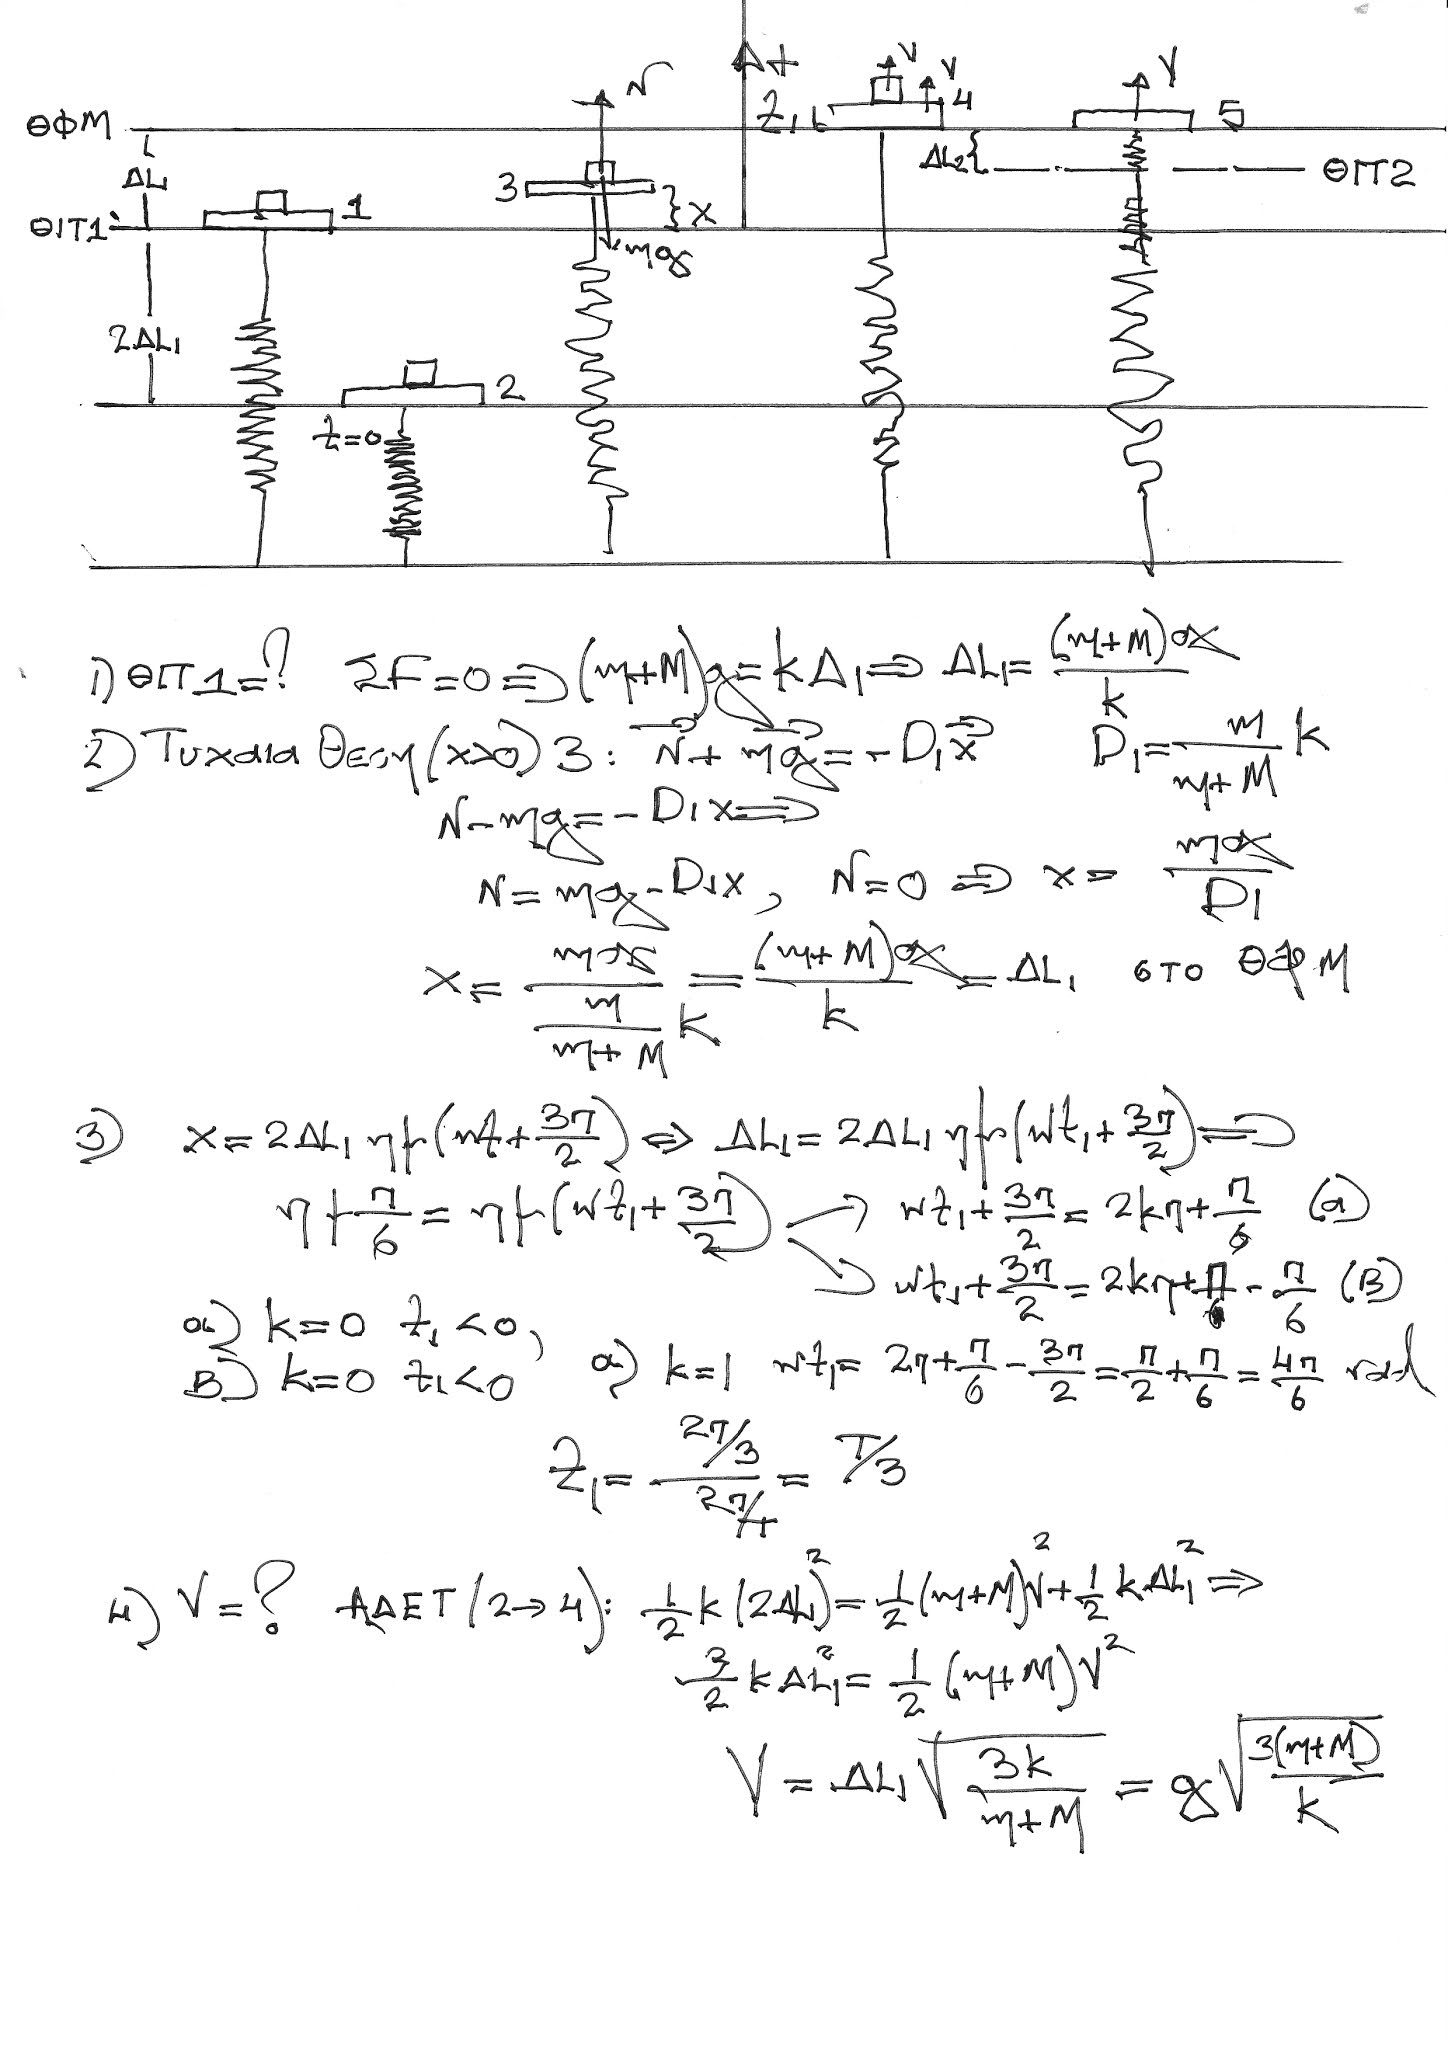 N
Δ+
V
V
V
ΘΦΜ
t₁
4
5
ΔL
3
ΔL₂
ΘΙΤ2
1
x
ΘΙΤ1
mg
2ΔL₁
2
t=0
1) ΘΙΤ1=? ΣF=0 ⇒ (m+M)g=kΔ₁ ⇒ ΔL₁= (m+M)g/k
2) Τυχαια θεση (x>0) 3: N⃗ + mg⃗ = -D₁x⃗ D₁= m/(m+M) k
N-mg=-D₁x ⇒
N=mg-D₁x, N=0 ⇒ x= mg/D₁
x= mg/(m/(m+M) k) = (m+M)g/k = ΔL₁ στο ΘΦΜ
3) x=2ΔL₁ ημ(ωt+3π/2) ⇔ ΔL₁=2ΔL₁ ημ(ωt₁+3π/2) ⇒
ημ π/6 = ημ(ωt₁+3π/2) → ωt₁+3π/2=2kπ+π/6 (α)
→ ωt₁+3π/2=2kπ+π-π/6 (Β)
α) k=0 t₁<0,
Β) k=0 t₁<0 α) k=1 ωt₁= 2π+π/6-3π/2=π/2+π/6=4π/6 rad
t₁= (2π/3)/(2π/T) = T/3
4) V=? ΑΔΕΤ(2→4): 1/2 k(2ΔL₁)²=1/2(m+M)V²+1/2 kΔL₁² ⇒
3/2 kΔL₁²= 1/2 (m+M)V²
V = ΔL₁ √(3k/(m+M)) = g √(3(m+M)/k)